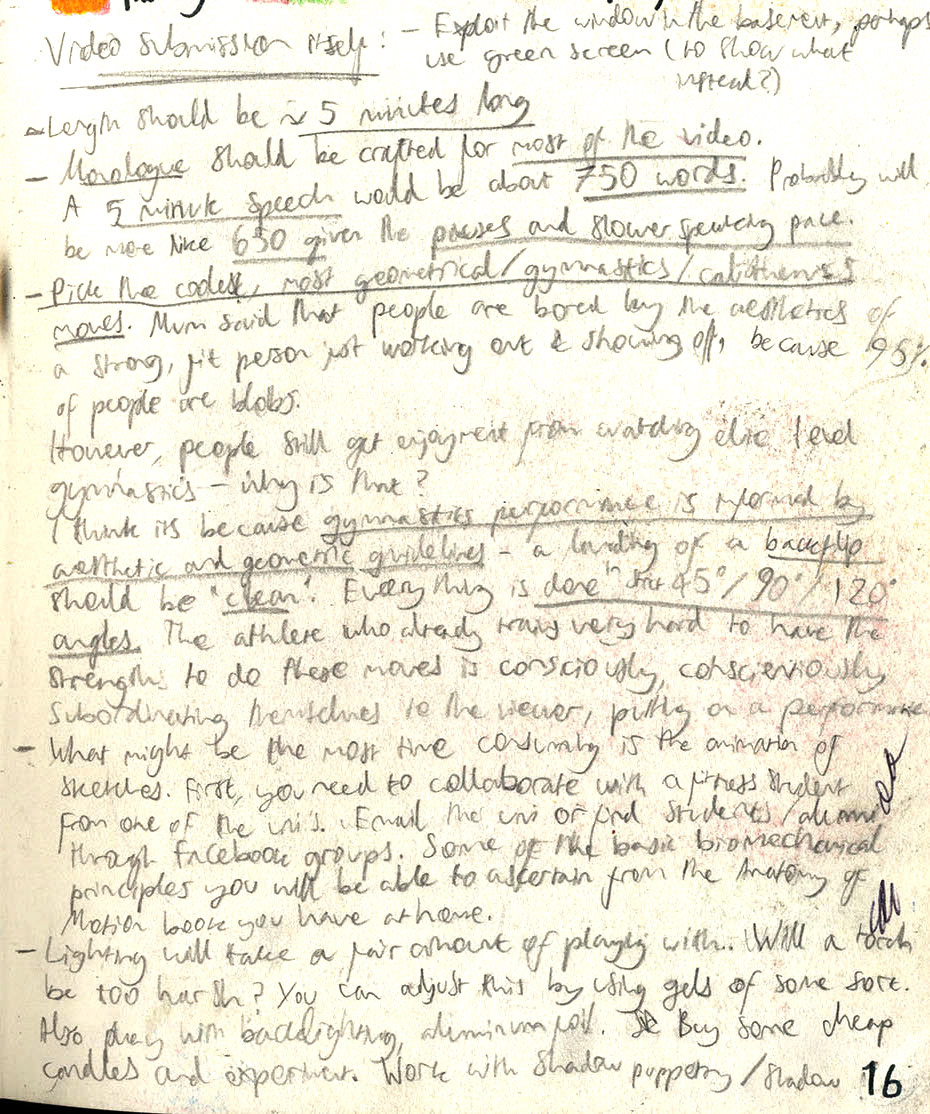 Video submission itself: - Exploit the window in the basement, perhaps
use green screen (to show what
instead?)
- Length should be ~ 5 minutes long
- Monologue should be crafted for most of the video.
A 5 minute speech would be about 750 words. Probably will
be more like 630 given the pauses and slower speaking pace.
- Pick the coolest, most geometrical/gymnastics/calisthenics
moves. Mum said that people are bored by the aesthetics of
a strong, fit person just working out & showing off, because 95%
of people are blobs.
However, people still get enjoyment from watching elite level
gymnastics - why is that?
I think its because gymnastics performance is informed by
aesthetic and geometric guidelines - a landing of a backflip
should be "clean". Everything is done in strict 45°/90°/120°
angles. The athlete who already trains very hard to have the
strengths to do these moves is consciously, conscientiously
subordinating themselves to the viewer, putting on a performance
- What might be the most time consuming is the animation of
sketches. First, you need to collaborate with a fitness student
from one of the uni's. Email the uni or find students/alumni
through facebook groups. Some of the basic biomechanical
principles you will be able to ascertain from the Anatomy of
Motion book you have at home.
- Lighting will take a fair amount of playing with.. Will a torch
be too harsh? You can adjust this by using gels of some sort.
Also play with backlighting, aluminum foil. Buy some cheap
candles and experiment. Work with shadow puppetry/shadow
16